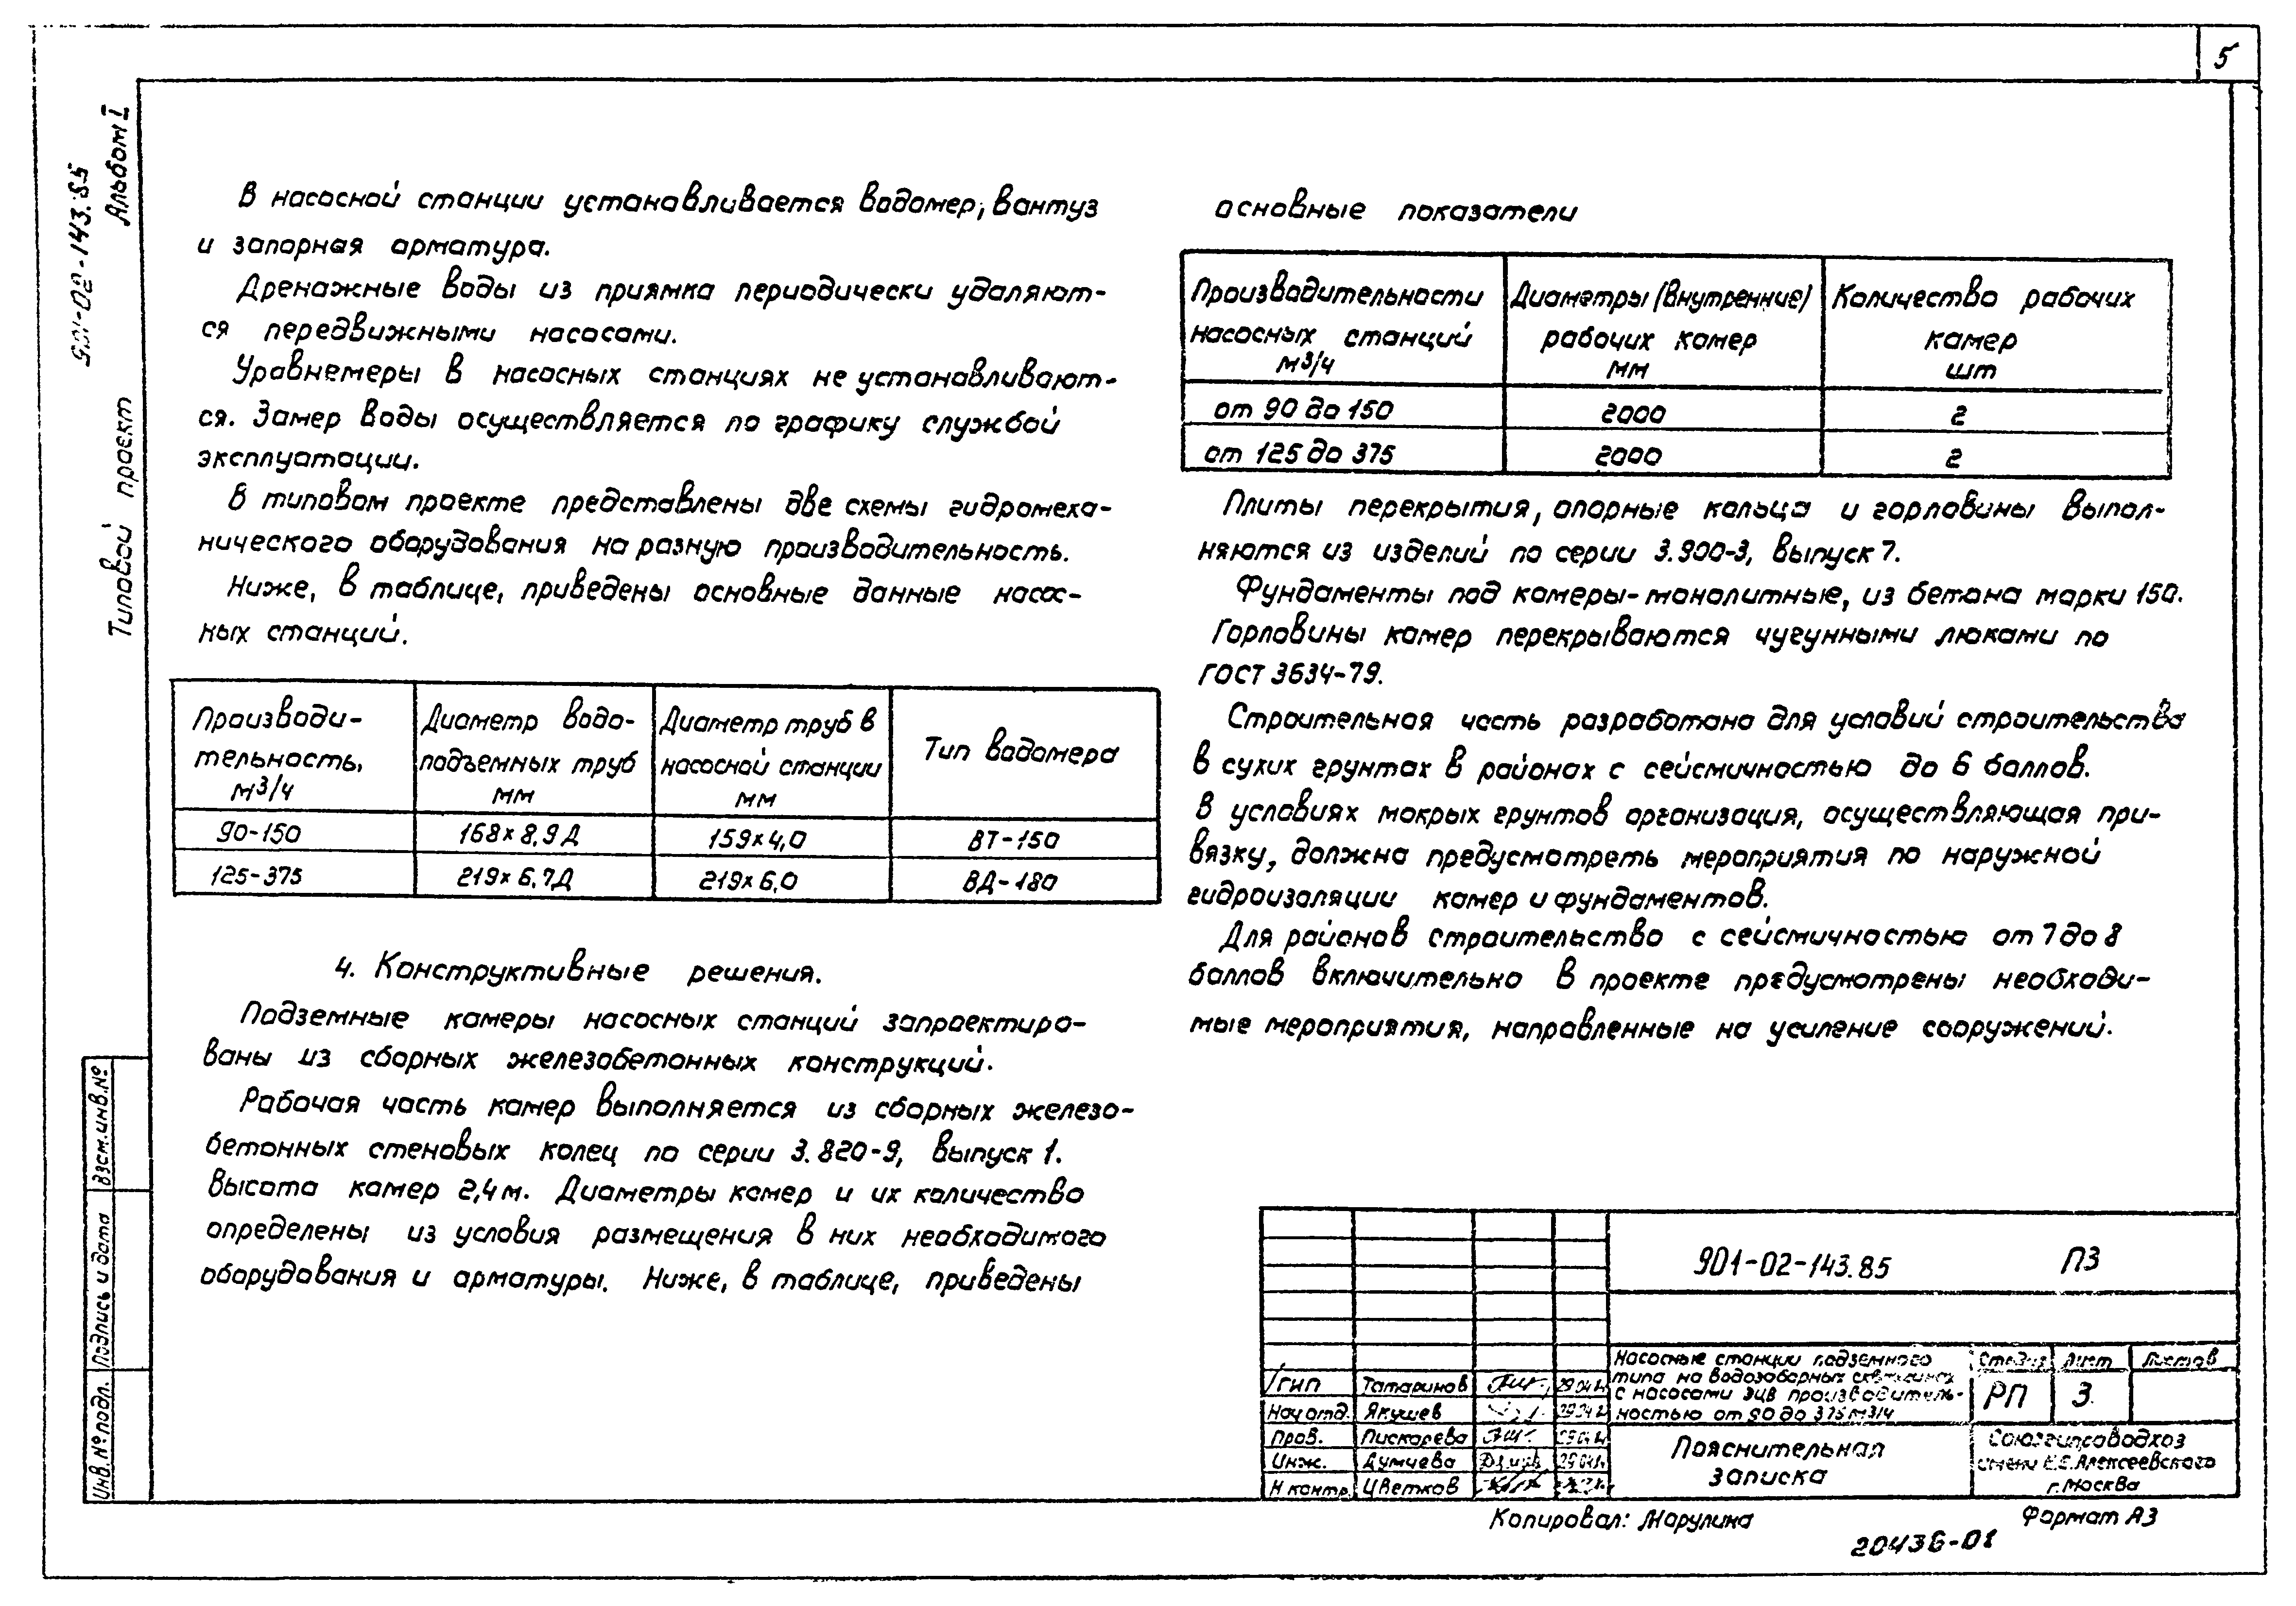 5
Альбом I
901-02-143.85
Типовой проект
В насосной станции устанавливается водомер, вантуз
и запорная арматура.
Дренажные воды из приямка периодически удаляют-
ся передвижными насосами.
Уравнемеры в насосных станциях не устанавливают-
ся. Замер воды осуществляется по графику службой
эксплуатации.
В типовом проекте представлены две схемы гидромеха-
нического оборудования на разную производительность.
Ниже, в таблице, приведены основные данные насос-
ных станций.
Производи- Диаметр водо- Диаметр труб в Тип водомера
тельность, подъемных труб насосной станции
м3/ч мм мм
90-150 168×8,9Д 159×4,0 ВТ-150
125-375 219×6,7Д 219×6,0 ВД-180
4. Конструктивные решения.
Подземные камеры насосных станций запроектиро-
ваны из сборных железобетонных конструкций.
Рабочая часть камер выполняется из сборных железо-
бетонных стеновых колец по серии 3.820-9, выпуск 1.
Высота камер 2,4м. Диаметры камер и их количество
определены из условия размещения в них необходимого
оборудования и арматуры. Ниже, в таблице, приведены
основные показатели
Производительности Диаметры (внутренние) Количество рабочих
насосных станций рабочих камер камер
м3/ч мм шт
от 90 до 150 2000 2
от 125 до 375 2000 2
Плиты перекрытия, опорные кольца и горловины выпол-
няются из изделий по серии 3.900-3, выпуск 7.
Фундаменты под камеры-монолитные, из бетона марки 150.
Горловины камер перекрываются чугунными люками по
ГОСТ 3634-79.
Строительная часть разработана для условий строительства
в сухих грунтах в районах с сейсмичностью до 6 баллов.
В условиях мокрых грунтов организация, осуществляющая при-
вязку, должна предусмотреть мероприятия по наружной
гидроизоляции камер и фундаментов.
Для районов строительство с сейсмичностью от 7 до 8
баллов включительно в проекте предусмотрены необходи-
мые мероприятия, направленные на усиление сооружений.
Взам.инв.№
Подпись и дата
Инв.№ подл.
901-02-143.85 ПЗ
Насосные станции подземного
типа на водозаборных скважинах
с насосами ЭЦВ производитель-
ностью от 90 до 375 м3/ч
Стадия Лист Листов
РП 3
ГИП Татаринов
Нач отд. Якушев
Пров. Пискарева
Инж. Думчева
Н контр. Цветков
Пояснительная
записка
Союзгипроводхоз
имени Е.Е.Алексеевского
г.Москва
Копировал: Марулина Формат А3
20436-01